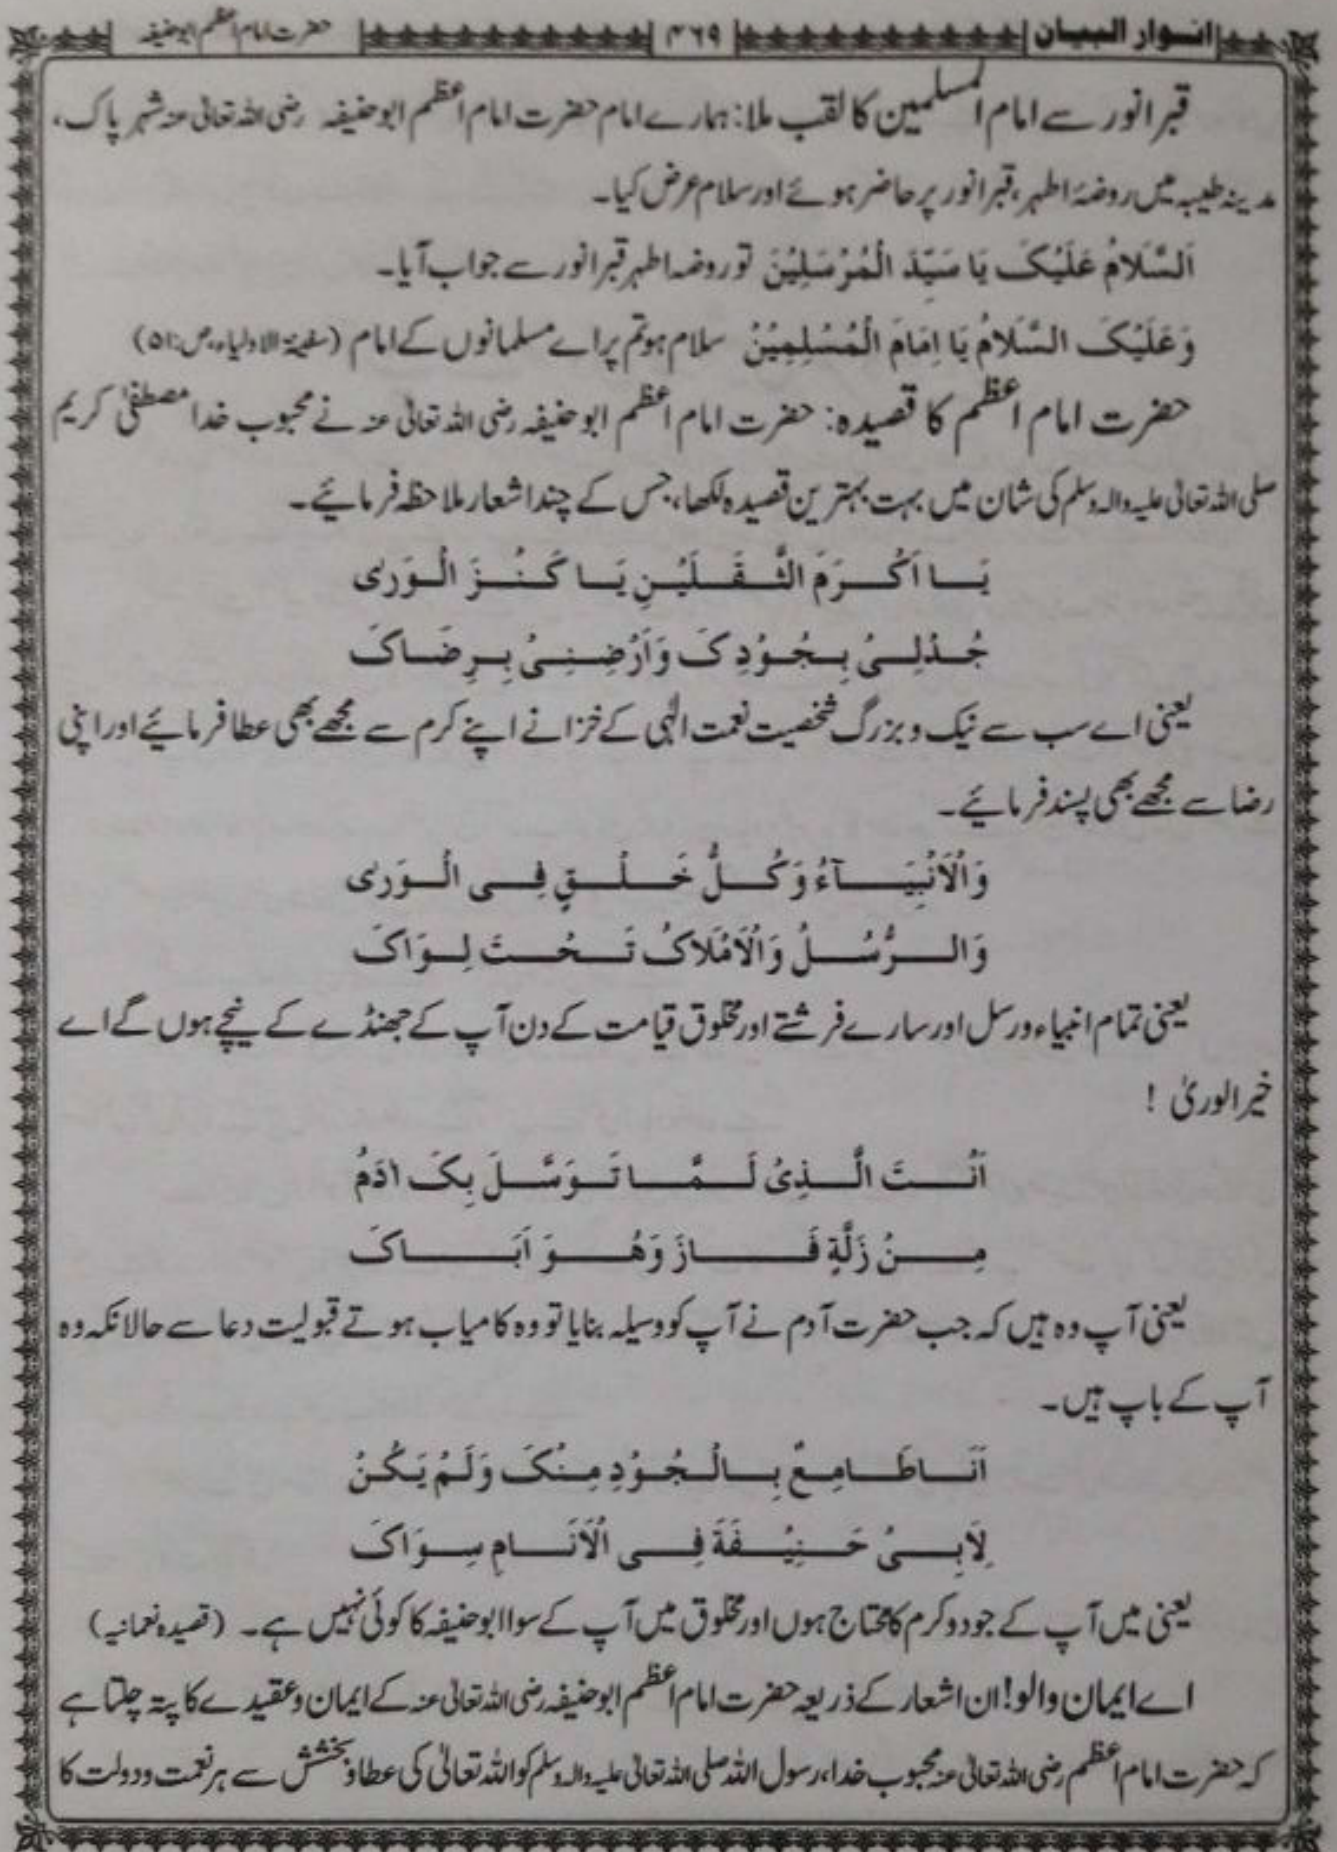 انوار البیان ۳۶۹ حضرت امام اعظم ابوحنیفہ
قبر انور سے امام المسلمین کا لقب ملا: ہمارے امام حضرت امام اعظم ابوحنیفہ رضی اللہ تعالیٰ عنہ شہر پاک،
مدینہ طیبہ میں روضۂ اطہر، قبر انور پر حاضر ہوئے اور سلام عرض کیا۔
اَلسَّلَامُ عَلَیْکَ یَا سَیِّدَ الْمُرْسَلِیْنَ تو روضہ اطہر قبر انور سے جواب آیا۔
وَعَلَیْکَ السَّلَامُ یَا اِمَامَ الْمُسْلِمِیْنُ سلام ہو تم پر اے مسلمانوں کے امام (سفینۃ الاولیاء، ص:۵۱)
حضرت امام اعظم کا قصیدہ: حضرت امام اعظم ابوحنیفہ رضی اللہ تعالیٰ عنہ نے محبوب خدا مصطفیٰ کریم
صلی اللہ تعالیٰ علیہ والہ وسلم کی شان میں بہت بہترین قصیدہ لکھا، جس کے چند اشعار ملاحظہ فرمائیے۔
یَا اَکْرَمَ الثَّقَلَیْنِ یَا کَنْزَ الْوَرٰی
جُدْلِیْ بِجُوْدِکَ وَاَرْضِنِیْ بِرِضَاکَ
یعنی اے سب سے نیک و بزرگ شخصیت نعمت الٰہی کے خزانے اپنے کرم سے مجھے بھی عطا فرمائیے اور اپنی
رضا سے مجھے بھی پسند فرمائیے۔
وَالْاَنْبِیَآءُ وَکُلُّ خَلْقٍ فِی الْوَرٰی
وَالرُّسُلُ وَالْاَمْلَاکُ تَحْتَ لِوَاکَ
یعنی تمام انبیاء ورسل اور سارے فرشتے اور مخلوق قیامت کے دن آپ کے جھنڈے کے نیچے ہوں گے اے
خیر الوریٰ !
اَنْتَ الَّذِیْ لَمَّا تَوَسَّلَ بِکَ اٰدَمُ
مِنْ زَلَّۃٍ فَازَ وَهُوَ اَبَاکَ
یعنی آپ وہ ہیں کہ جب حضرت آدم نے آپ کو وسیلہ بنایا تو وہ کامیاب ہوتے قبولیت دعا سے حالانکہ وہ
آپ کے باپ ہیں۔
اَنَا طَامِعٌ بِالْجُوْدِ مِنْکَ وَلَمْ یَکُنْ
لِاَبِیْ حَنِیْفَۃَ فِی الْاَنَامِ سِوَاکَ
یعنی میں آپ کے جود و کرم کا محتاج ہوں اور مخلوق میں آپ کے سوا ابوحنیفہ کا کوئی نہیں ہے۔ (قصیدہ نعمانیہ)
اے ایمان والو! ان اشعار کے ذریعہ حضرت امام اعظم ابوحنیفہ رضی اللہ تعالیٰ عنہ کے ایمان و عقیدے کا پتہ چلتا ہے
کہ حضرت امام اعظم رضی اللہ تعالیٰ عنہ محبوب خدا، رسول اللہ صلی اللہ تعالیٰ علیہ والہ وسلم کو اللہ تعالیٰ کی عطا و بخشش سے ہر نعمت و دولت کا